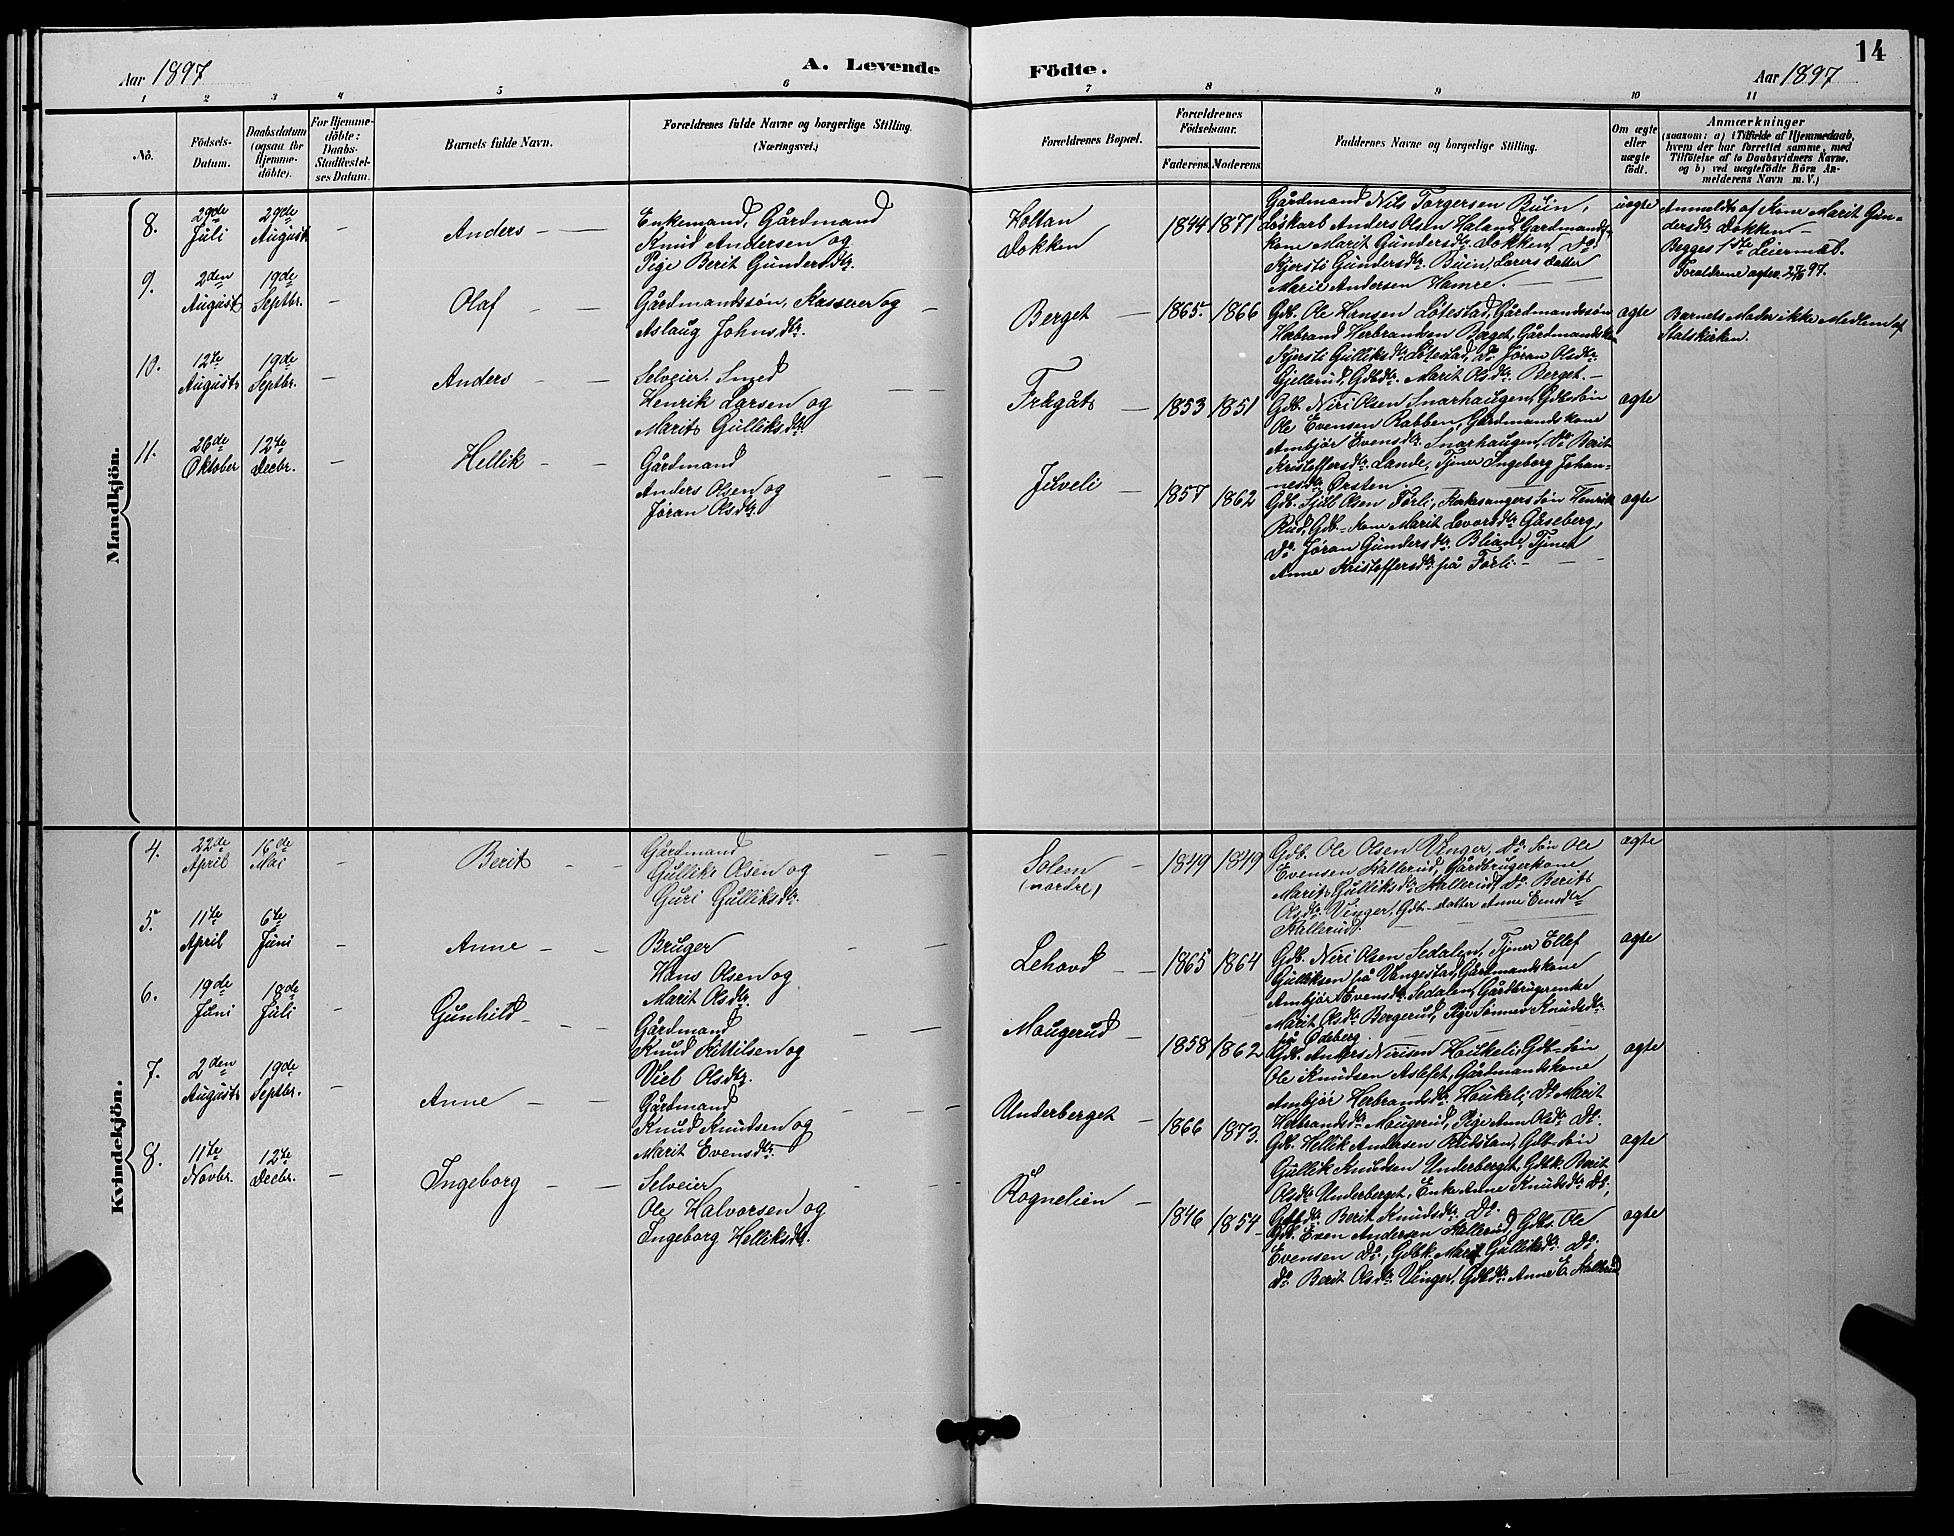 14
Aar 1897
A. Levende
Födte.
Aar 1897
1 2 3 4 5 6 7 8 9 10 11
No.
Födsels-
Datum.
Daabsdatum
(ogsaa for
Hjemme-
döbte).
For Hjemme-
döbte:
Daabs-
Stadfæstel-
ses Datum.
Barnets fulde Navn.
Forældrenes fulde Navne og borgerlige Stilling.
(Næringsvei.)
Forældrenes Bopæl.
Forældrenes
Födselsaar.
Faderens. Moderens.
Faddernes Navne og borgerlige Stilling.
Om ægte
eller
uægte
födt.
Anmærkninger
(saasom: a) i Tilfælde af Hjemmedaab,
hvem der har forrettet samme, med
Tilföielse af to Daabsvidners Navne.
og b) ved uægtefödte Börn An-
melderens Navn m. V.)
Mandkjön.
8.
29de
Juli
29de
August
-
Anders
Enkemand, Gårdmand
Knud Andersen og
Pige Berit Gundersdtr.
Holtan
Dokken
1844 1871
Gårdmand Nils Torgersen Buin,
Løskarl Anders Olsen Haland, Gardmands-
kone Marit Gundersdtr. Dokken, Do
Kjersti Gundersdtr. Buin, Lærersdatter
Marie Andersen Hamre.
uægte
Anmeldt af Kone Marit Gun-
dersdtr. Dokken
Begges 1ste Leiermål.
Forældrene ægtev. 27/9 97.
9.
2den
August
19de
Septbr.
-
Olaf
Gårdmandssøn, Kasserer og
Aslaug Johnsdtr.
Berget
1865 1866
Gdb. Ole Hansen Løtestad, Gårdmandssøn
Herbrand Herbrandsen Berget, Gårdmandskone
Kjersti Gulliksdtr. Løtestad, Do Jøran Olsdtr.
Gjellerud, Gdbdtr. Marit Olsdtr. Berget.
ægte
Barnets Moder ikke Medlem af
Statskirken.
10.
12te
August
19de
Septbr.
-
Anders
Selveier, Smed
Henrik Larsen og
Marit Gulliksdtr.
Frågåt
1853 1851
Gdb. Niri Olsen Snarhaugen, Gdb. Søn
Ole Evensen Rabben, Gårdmandskone
Ambjør Evensdtr. Snarhaugen, Do Berit
Kristoffersdtr. Lande, Tjener Ingeborg Johan-
nesdtr. Ørsten
ægte
11.
26de
Oktober
12te
Decbr.
-
Hellik
Gårdmand
Anders Olsen og
Jøran Olsdtr.
Juveli
1857 1862
Gdb. Olsen Førli, Kirkesangers søn Henrik
Rud, Gdb-kone Marit Levorsdtr. Gåseberg,
Do. Jøran Gundersdtr. Tjener
Anne Kristoffersdtr. på Førli.
ægte
Kvindekjön.
4.
22de
April
16de
Mai
-
Berit
Gårdmand
Gullik Olsen og
Guri Gulliksdtr.
Solem
(nordre)
1849 1849
Gdb. Ole Olsen Vinger, Do. Søn Ole
Evensen Stallerud, Gårdbrugerkone
Marit Gulliksdtr. Stallerud, Do Berit
Olsdtr. Vinger, Gdb-datter Anne Evensdtr.
Stallerud.
ægte
5.
11te
April
6te
Juni
-
Anne
Bruger
Hans Olsen og
Marit Olsdtr.
Lehovd
1865 1864
Gdb. Niri Olsen Sedalen, Tjener Ellef
Gulliksen på Vangestad, Gårdmandskone
Ambjør Evensdtr. Sedalen, Gårdbrugerenke
Marit Olsdtr. Bergerud, Pige Sønnev Knudsdtr.
på Ødeberg.
ægte
6.
19de
Juni
18de
Juli
-
Gunhild
Gårdmand
Knud Kittilsen og
Viel Olsdtr.
Mougerud
1858 1862
Gdb. Anders Nirisen Houkeli, Gdb-Søn
Ole Knudsen Aslefet, Gårdmandskone
Ambjør Herbrandsdtr. Houkeli, Do Marit
Herbrandsdtr. Mougerud, Pige Ann Olsdtr. Do.
ægte
7.
2den
August
19de
Septbr.
-
Anne
Gårdmand
Knud Knudsen og
Marit Evensdtr.
Underberget
1866 1873
Gdb. Hellik Andersen Rudstan, Gdb-Søn
Gullik Knudsen Underberget, Gdbk. Berit
Olsdtr. Underberget, Enke Anne Knudsdtr. Do,
Gdbdtr. Berit Knudsdtr. Do.
ægte
8.
11te
Novbr.
12te
Decbr.
-
Ingeborg
Selveier
Ole Halvorsen og
Ingeborg Helliksdtr.
Rognelien
1846 1854
Gdb. Even Andersen Stallerud, Gdbs. Ole
Evensen Do, Gdbk. Marit Gulliksdtr. Do,
Do Berit Olsdtr. Vinger, Gdbdtr. Anne E. Stallerud
ægte